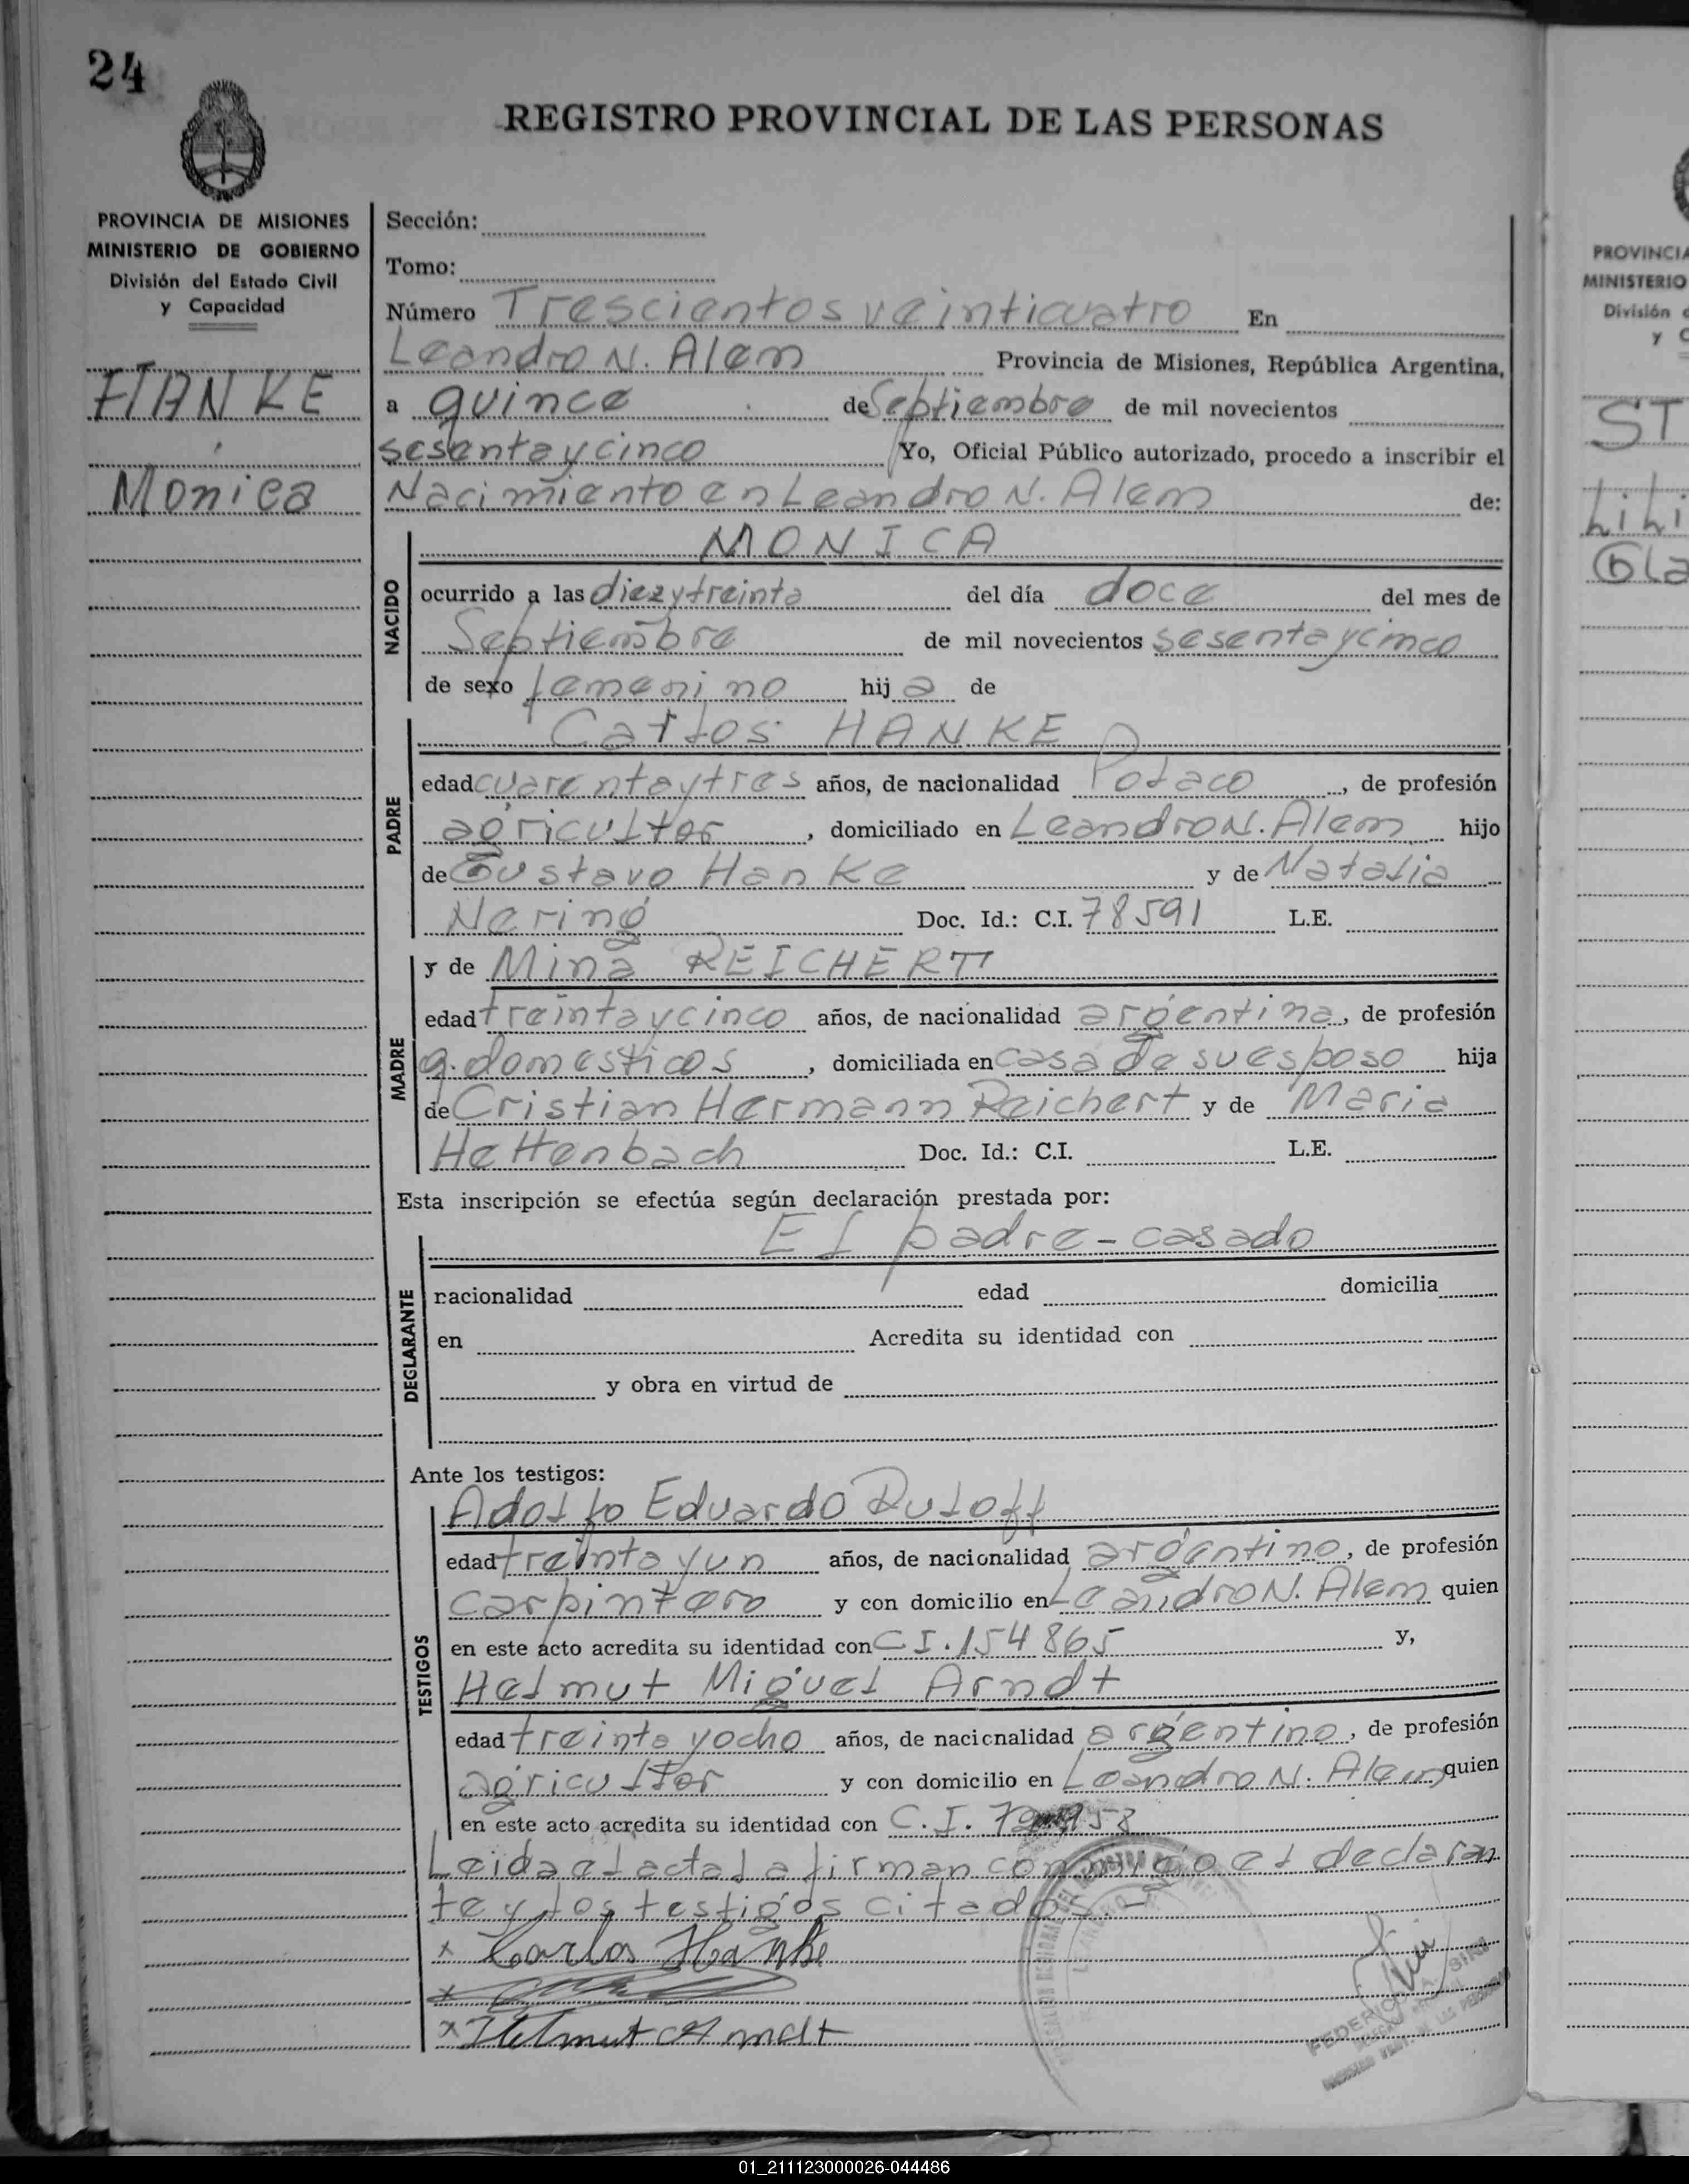 24
REGISTRO PROVINCIAL DE LAS PERSONAS
PROVINCIA DE MISIONES
MINISTERIO DE GOBIERNO
División del Estado Civil
y Capacidad
HANKE
Monica
Sección:
Tomo:
Número Trescientos veinticuatro En
Leandro N. Alem Provincia de Misiones, República Argentina,
a quince de Septiembre de mil novecientos
sesenta y cinco Yo, Oficial Público autorizado, procedo a inscribir el
Nacimiento en Leandro N. Alem de:
NACIDO
MONICA
ocurrido a las diez y treinta del día doce del mes de
Septiembre de mil novecientos sesenta y cinco
de sexo femenino hija de
PADRE
Carlos HANKE
edad cuarenta y tres años, de nacionalidad Polaco, de profesión
agricultor, domiciliado en Leandro N. Alem hijo
de Gustavo Hanke y de Natalia
Nering Doc. Id.: C.I. 78591 L.E.
MADRE
y de Mina REICHERT
edad treinta y cinco años, de nacionalidad argentina, de profesión
q. domesticos, domiciliada en casa de su esposo hija
de Cristian Hermann Reichert y de Maria
Hettenbach Doc. Id.: C.I. L.E.
Esta inscripción se efectúa según declaración prestada por:
DECLARANTE
El padre - casado
nacionalidad edad domicilia
en Acredita su identidad con
y obra en virtud de
Ante los testigos:
TESTIGOS
Adolfo Eduardo Rutoff
edad treinta y un años, de nacionalidad argentino, de profesión
carpintero y con domicilio en Leandro N. Alem quien
en este acto acredita su identidad con C I. 154865 y,
Helmut Miguel Arndt
edad treinta y ocho años, de nacionalidad argentino, de profesión
agricultor y con domicilio en Leandro N. Alem quien
en este acto acredita su identidad con C.I.
Leida el acta la firman conmigo el declaran
te y los testigos citados. -
x Carlos Hanke
x
x Helmut Arndt
FEDERICO A.
PROVINCIA
MINISTERIO
División
y
ST
Lili
Gla
01_211123000026-044486